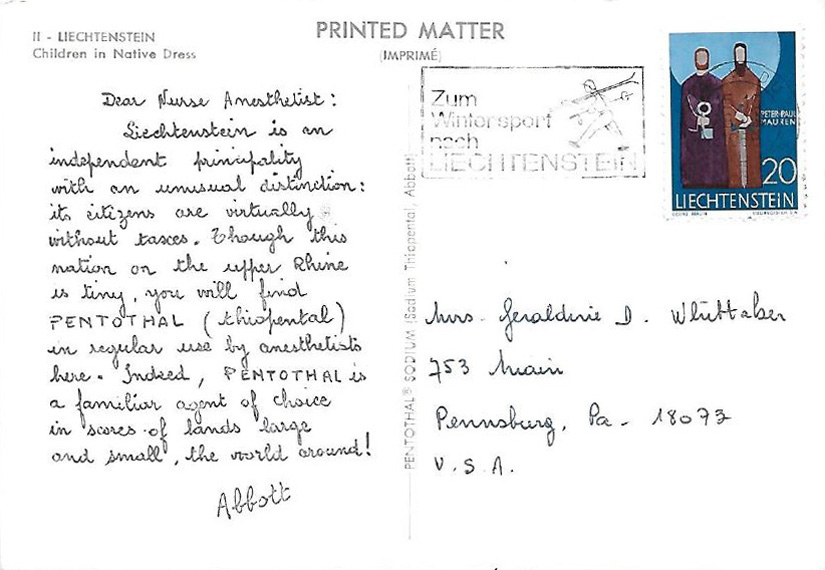 II - LIECHTENSTEIN
Children in Native Dress
PRINTED MATTER
(IMPRIMÉ)
Dear Nurse Anesthetist:
Liechtenstein is an
independent principality
with an unusual distinction:
its citizens are virtually
without taxes. Though this
nation on the upper Rhine
is tiny, you will find
PENTOTHAL (thiopental)
in regular use by anesthetists
here. Indeed, PENTOTHAL is
a familiar agent of choice
in scores of lands large
and small, the world around!
Abbott
PENTOTHAL® SODIUM (Sodium Thiopental, Abbott)
Zum
Wintersport
nach
LIECHTENSTEIN
PETER·PAUL
MAUREN
20
LIECHTENSTEIN
Mrs. Geraldine D. Whittaker
753 Main
Pennsburg, Pa - 18073
U.S.A.